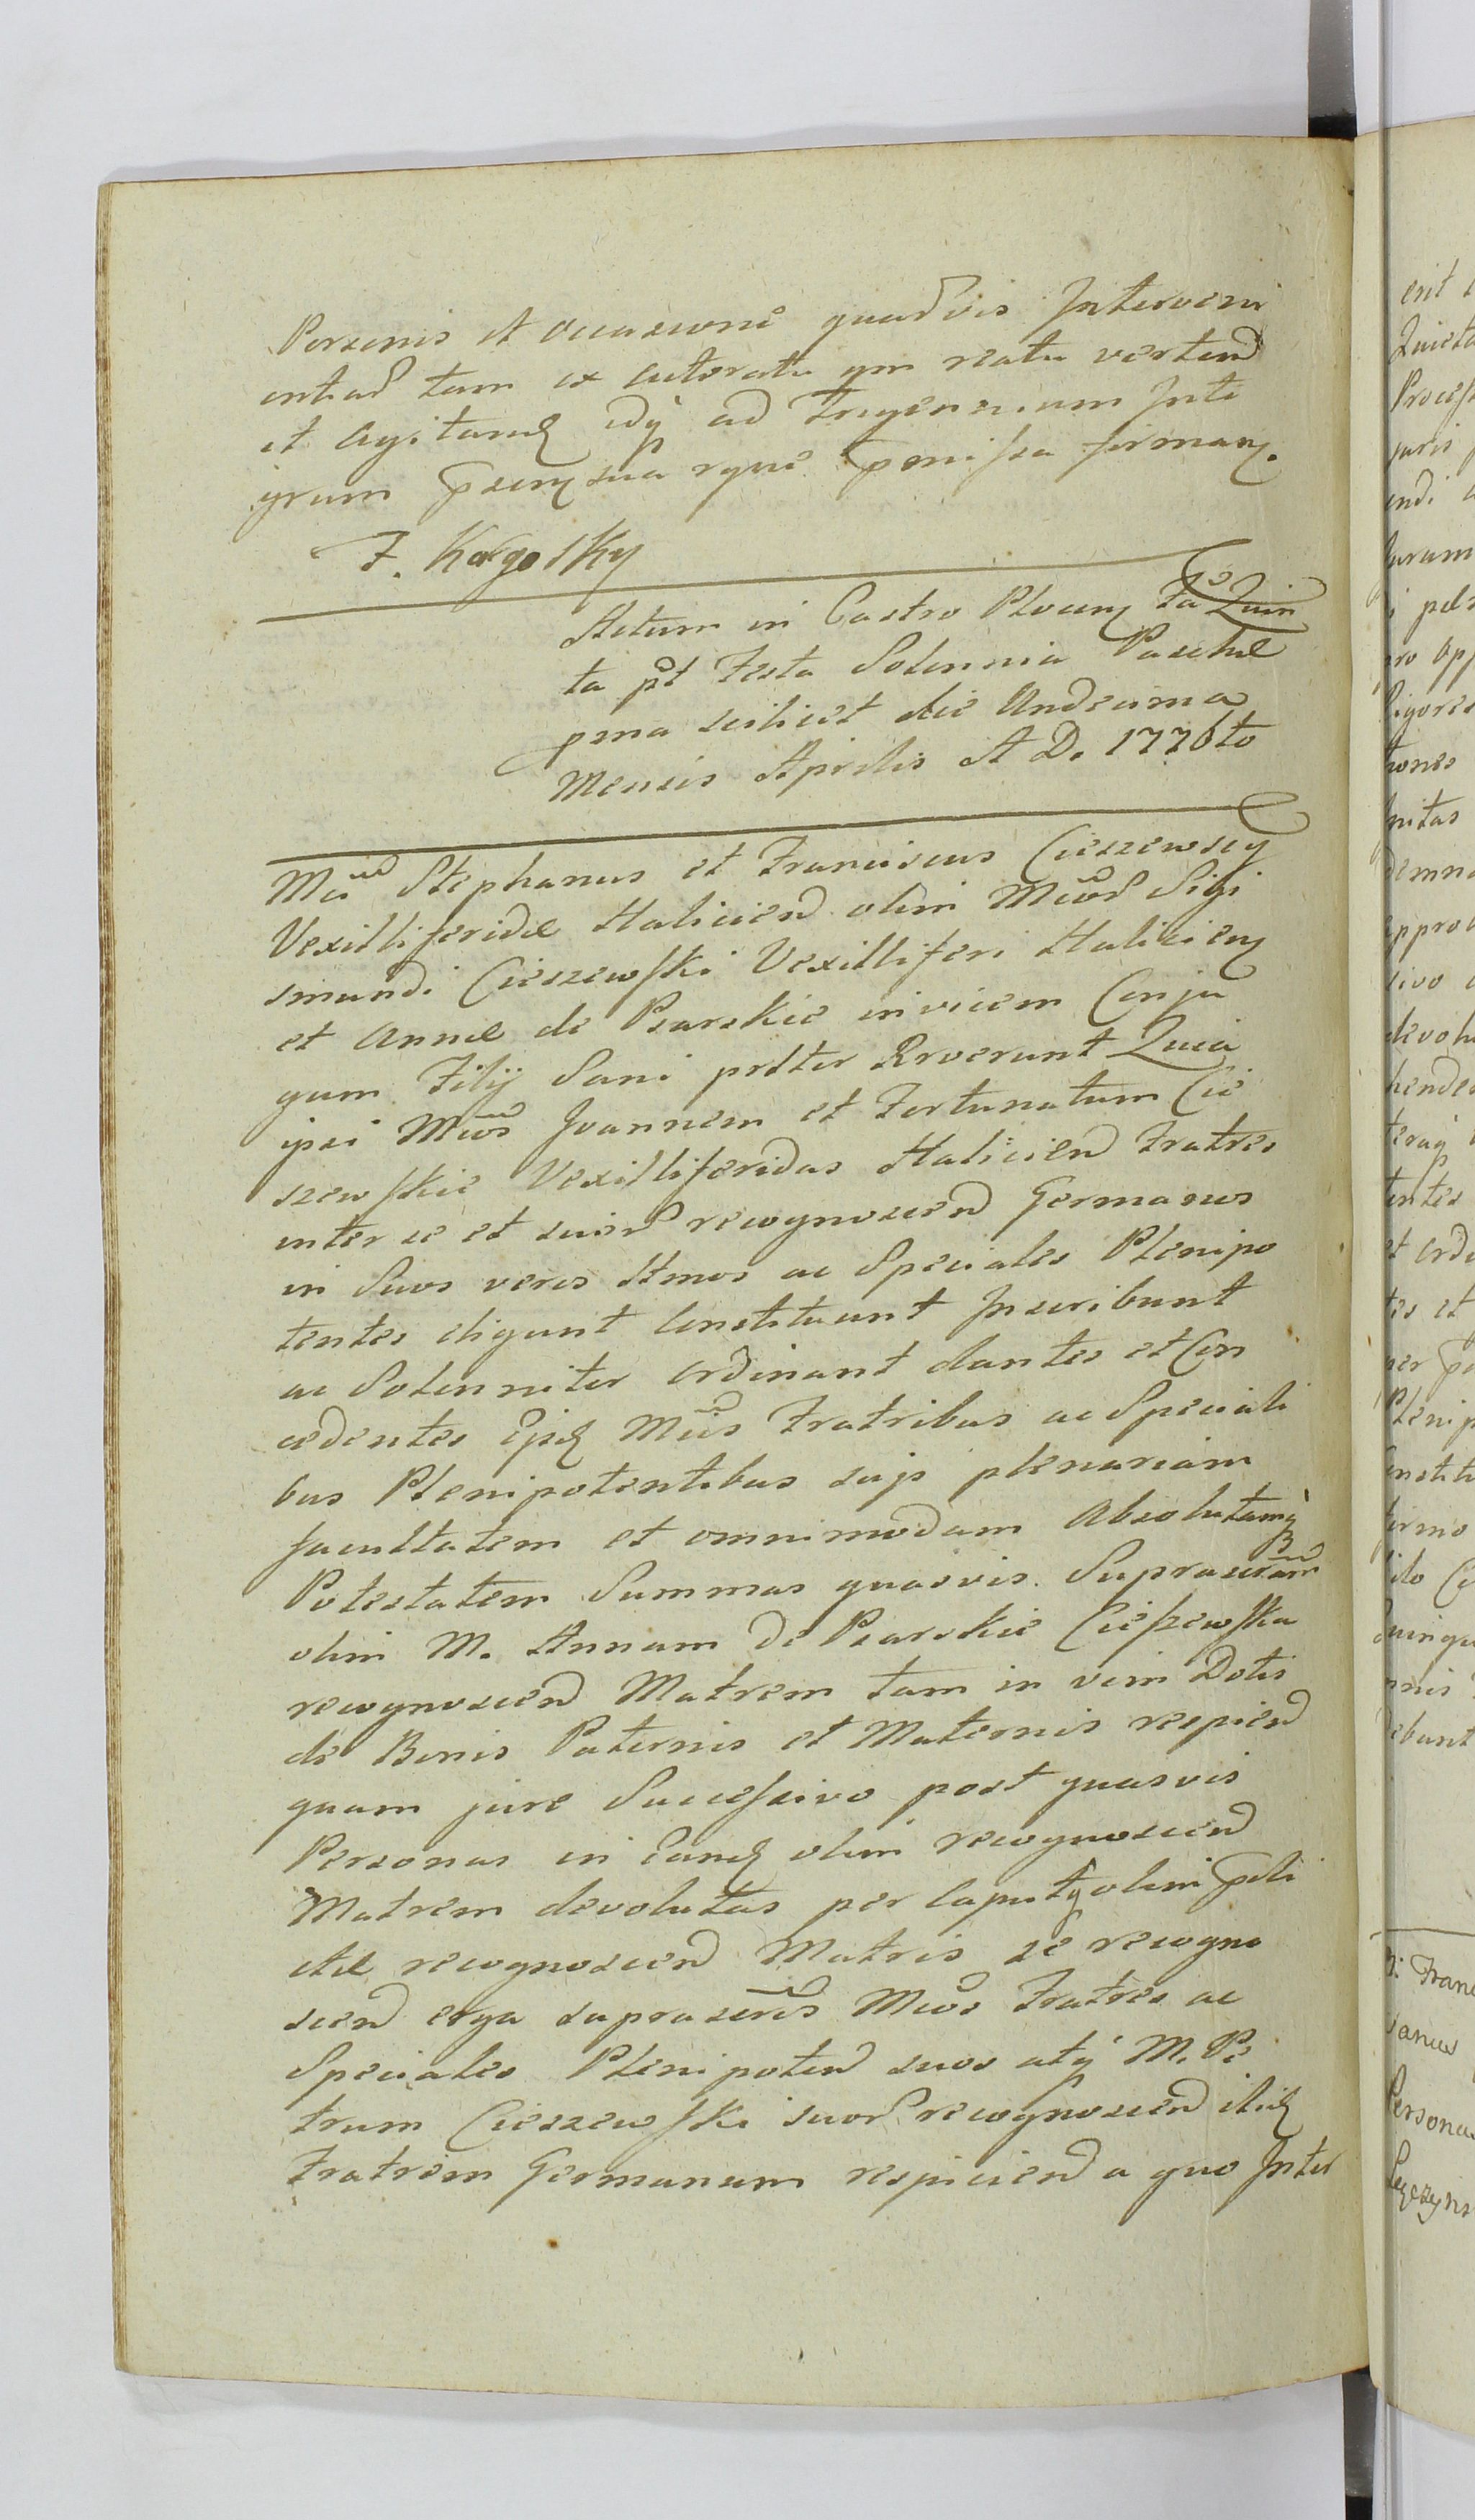 Personis et occasione quarvis Interveni
entiar tam ex citeratu qm reatu vertend
et agitand idq ad Trigenarium Inte
grum
F. Kargosky
Actum in Castro Plocen fa Quin
ta pt Festa Solennia Paschae
pma scilicet die Undecima
Mensis Aprilis A D. 1776to
Mci Stephanus et Franciscus Cieszewscy
Vexilliferidae Haliciend olim Mcor Sigi
smundi Cieszewski Vexilliferi Halicien
et Annae de Psarskie invicem Conju
gum Filij Sani prlter Rrverunt Quia
ipsi Mcos Joannem et Fortunatum Cie
szewskie Vexilliferidas Haliciend Fratres
inter se et suor recognoscend Germanos
in Suos veros Ltmos ac Speciales Plenipo
tentes eligunt Constituunt Inscribunt
ac Solenniter Ordinant dantes et Con
cedentes Ejsd Mcis Fratribus ac Speciali
bus Plenipotentibus sujs plenariam
facultatem et omnimodam Absolutamq
Potestatem Summas quasvis Suprascram
olim M. Annam de Psarskie Cieszewska
recognoscend Matrem tam in vim Dotis
de Bonis Paternis et Maternis respiend
quam jure Successivo post quasvis
Personas in Eand olim recognoscend
Matrem devolutas per Caputq olim pdi
ctae recognoscend Matris se recogno
scend erga suprascrtos Mcos Fratres ac
Speciales Plenipotend suos atq M. Pe
trum Cieszewski suor recognoscend itid
Fratrem Germanum respiciend a quo Inter